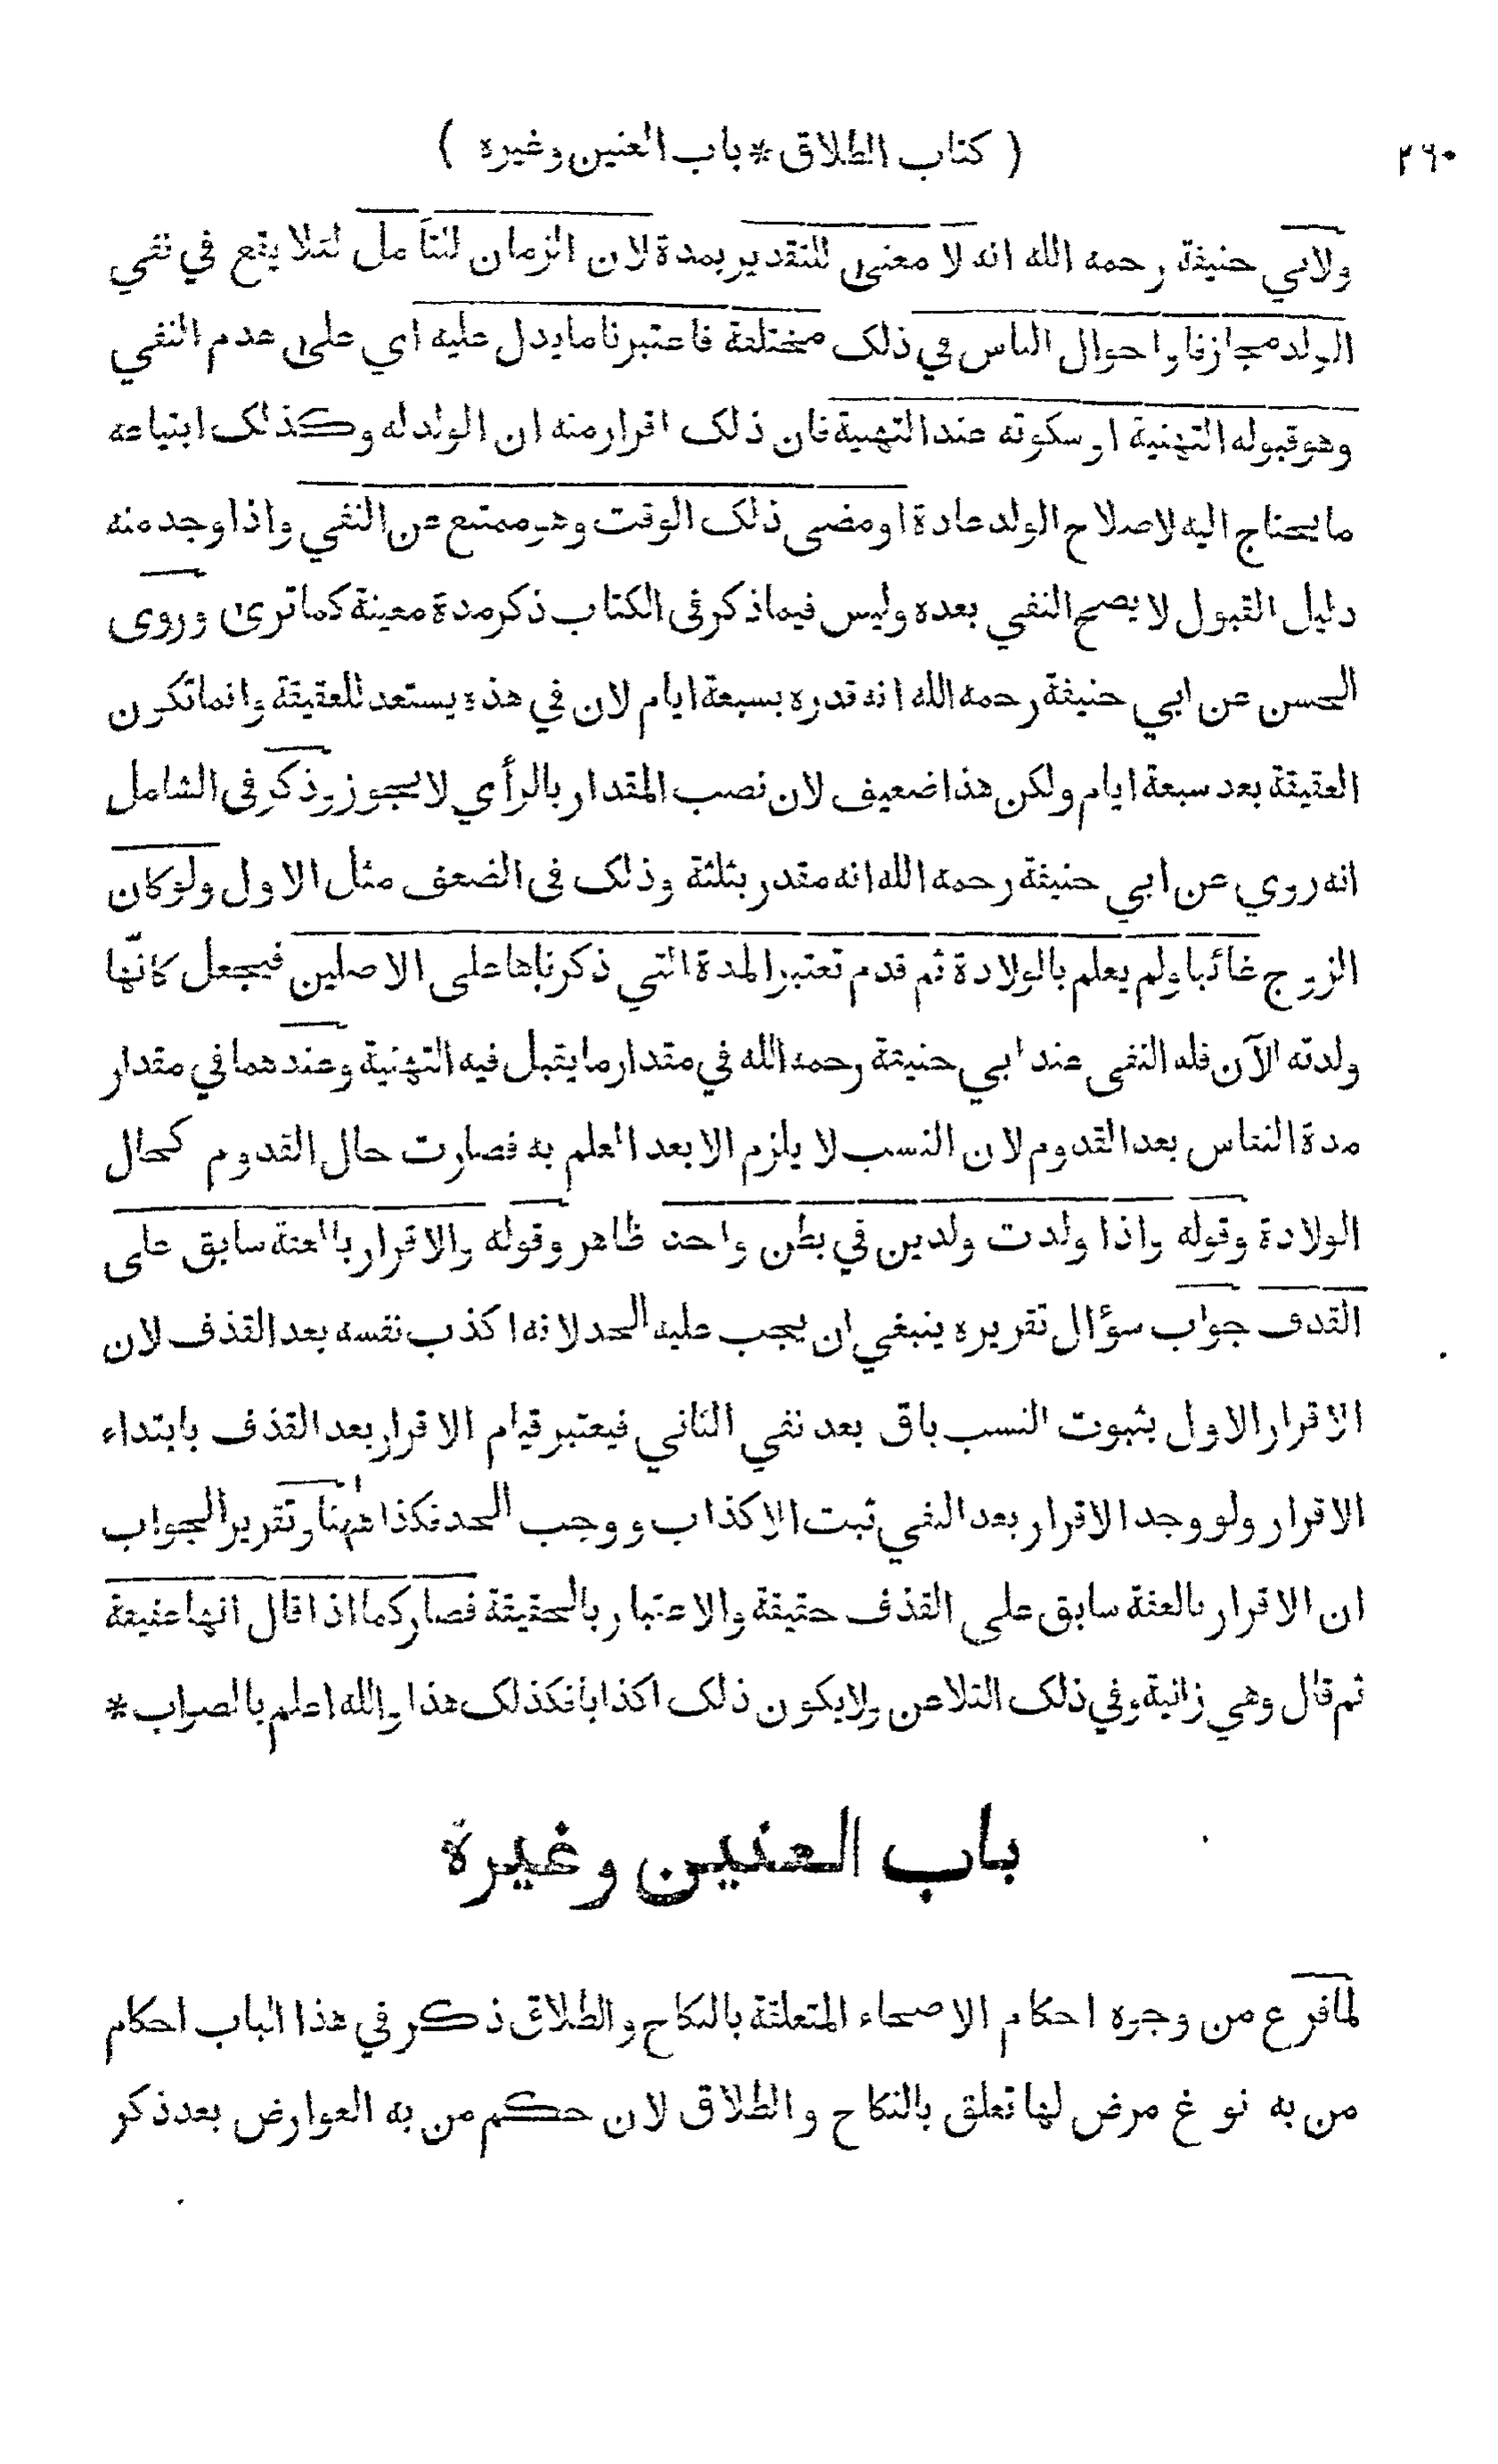 ٢٦٠
( كتاب الطلاق * باب العنين وغيره )
ولابي حنيفة رحمه الله انه لا معنى للتقدير بمدة لان الزمان للتأمل لئلا يقع في نفي
الولد مجازفا واحوال الناس في ذلك مختلفة فاعتبرنا ما يدل عليه اي على عدم النفي
وهو قبوله التهنية او سكوته عند التهنية فان ذلك اقرار منه ان الولد له وكذلك ابتياعه
ما يحتاج اليه لاصلاح الولد عادة او مضى ذلك الوقت وهو ممتنع عن النفي واذا وجد منه
دليل القبول لا يصح النفي بعده وليس فيما ذكر في الكتاب ذكر مدة معينة كما ترى وروى
الحسن عن ابي حنيفة رحمه الله انه قدره بسبعة ايام لان في هذه يستعد للعقيقة وانما تكون
العقيقة بعد سبعة ايام ولكن هذا ضعيف لان نصب المقدار بالرأي لا يجوز وذكر في الشامل
انه روي عن ابي حنيفة رحمه الله انه مقدر بثلثة وذلك في الضعف مثل الاول ولو كان
الزوج غائبا ولم يعلم بالولادة ثم قدم تعتبر المدة التي ذكرناها على الاصلين فيجعل كانّها
ولدته الآن فله النفي عند ابي حنيفة رحمه الله في مقدار ما يقبل فيه التهنية وعندهما في مقدار
مدة النفاس بعد القدوم لان النسب لا يلزم الا بعد العلم به فصارت حال القدوم كحال
الولادة وقوله واذا ولدت ولدين في بطن واحد ظاهر وقوله والاقرار بالعفة سابق على
القذف جواب سؤال تقريره ينبغي ان يجب عليه الحد لانه اكذب نفسه بعد القذف لان
الاقرار الاول بثبوت النسب باق بعد نفي الثاني فيعتبر قيام الاقرار بعد القذف بابتداء
الاقرار ولو وجد الاقرار بعد النفي ثبت الاكذاب ووجب الحد فكذا ههنا وتقرير الجواب
ان الاقرار بالعفة سابق على القذف حقيقة والاعتبار بالحقيقة فصار كما اذا قال انها عفيفة
ثم قال وهي زانية وفي ذلك التلاعن ولا يكون ذلك اكذابا فكذلك هذا والله اعلم بالصواب *
باب العنين وغيره
لما فرع من وجوه احكام الاصحاء المتعلقة بالنكاح والطلاق ذكر في هذا الباب احكام
من به نوع مرض لها تعلق بالنكاح والطلاق لان حكم من به العوارض بعد ذكر